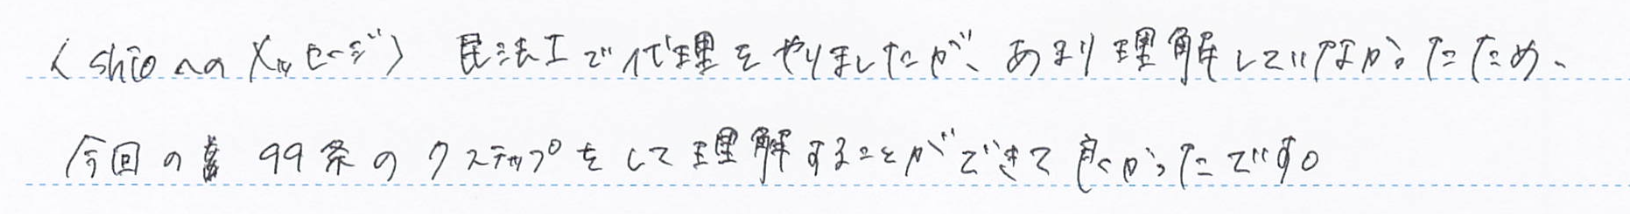 〈shioへのメッセージ〉 民法Iで代理をやりましたが、あまり理解していなかったため、
今回の 99条の7ステップをして理解することができて良かったです。